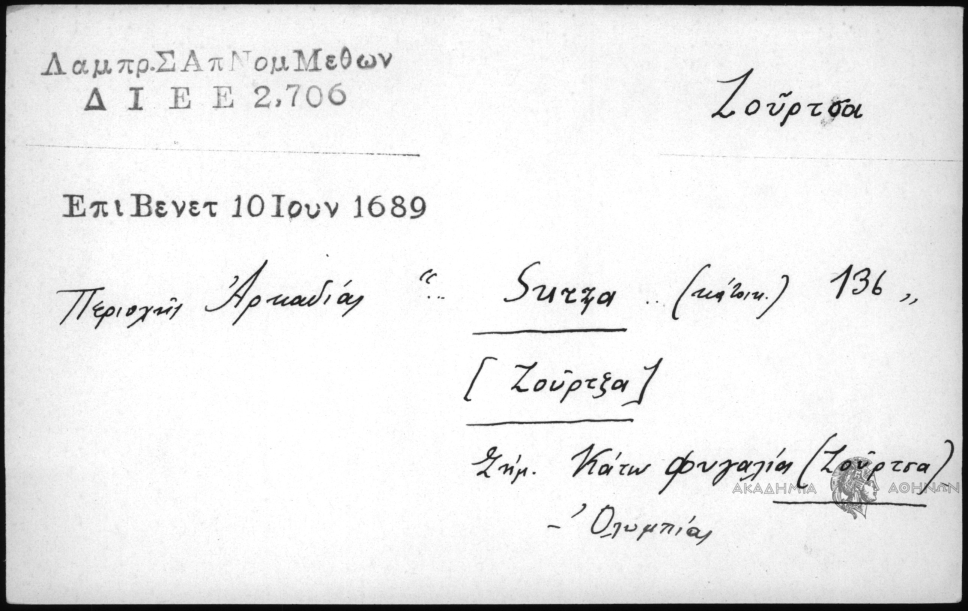 Λαμπρ.ΣΑπΝομΜεθων
Δ Ι Ε Ε 2,706
Ζοῦρτσα
Επι Βενετ 10 Ιουν 1689
Περιοχῆς Ἀρκαδίας “.. Surza .. (κάτοικ.) 136 „
[Ζοῦρτζα]
Σήμ. Κάτω Φιγαλία (Ζοῦρτσα)
– Ὀλυμπίας
ΑΚΑΔΗΜΙΑ ΑΘΗΝΩΝ